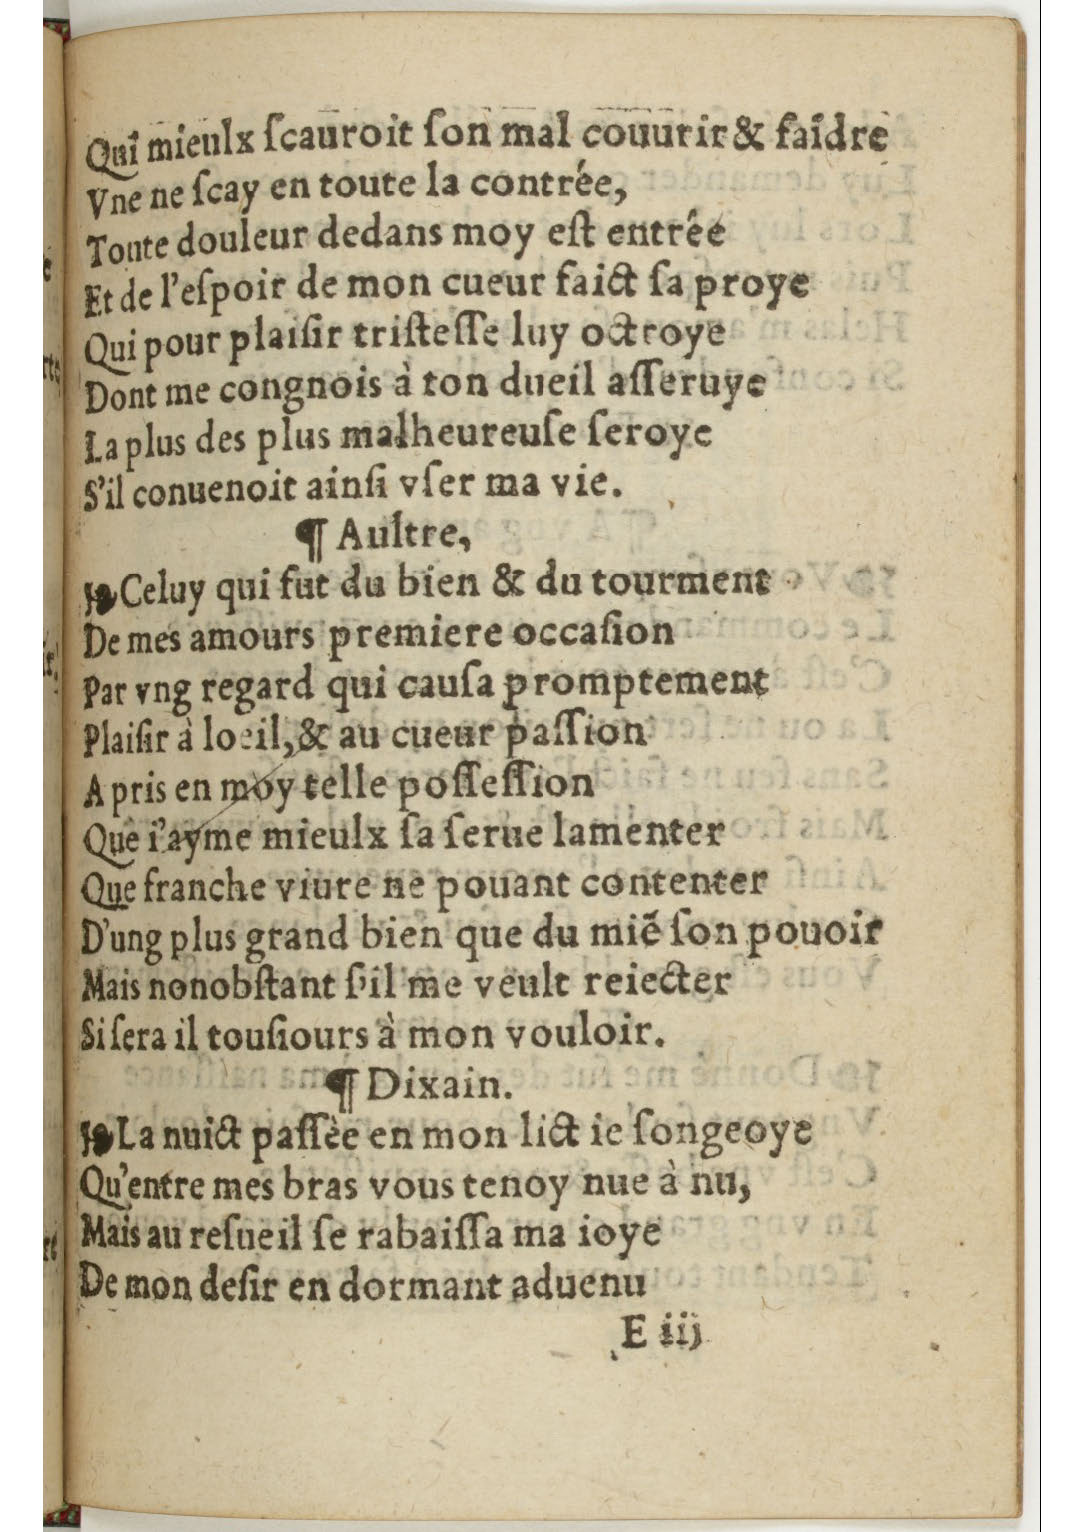 Qui mieulx ſcauroit ſon mal couurir & faĩdre
Vne ne ſcay en toute la contrée,
Toute douleur dedans moy eſt entrée
Et de l'eſpoir de mon cueur faict ſa proye
Qui pour plaiſir triſteſſe luy octroye
Dont me congnois à ton dueil aſſeruye
La plus des plus malheureuſe ſeroye
S'il conuenoit ainſi vſer ma vie.
¶ Aultre,
Celuy qui fut du bien & du tourment
De mes amours premiere occaſion
Par vng regard qui cauſa promptement
Plaiſir à loeil, & au cueur paſſion
A pris en moy telle poſſeſſion
Que i'ayme mieulx ſa ſerue lamenter
Que franche viure ne pouant contenter
D'ung plus grand bien que du miẽ ſon pouoir
Mais nonobſtant ſ'il me veult reiecter
Si ſera il touſiours à mon vouloir.
¶ Dixain.
La nuict paſſèe en mon lict ie ſongeoye
Qu'entre mes bras vous tenoy nue à nu,
Mais au reſueil ſe rabaiſſa ma ioye
De mon deſir en dormant aduenu
E iij